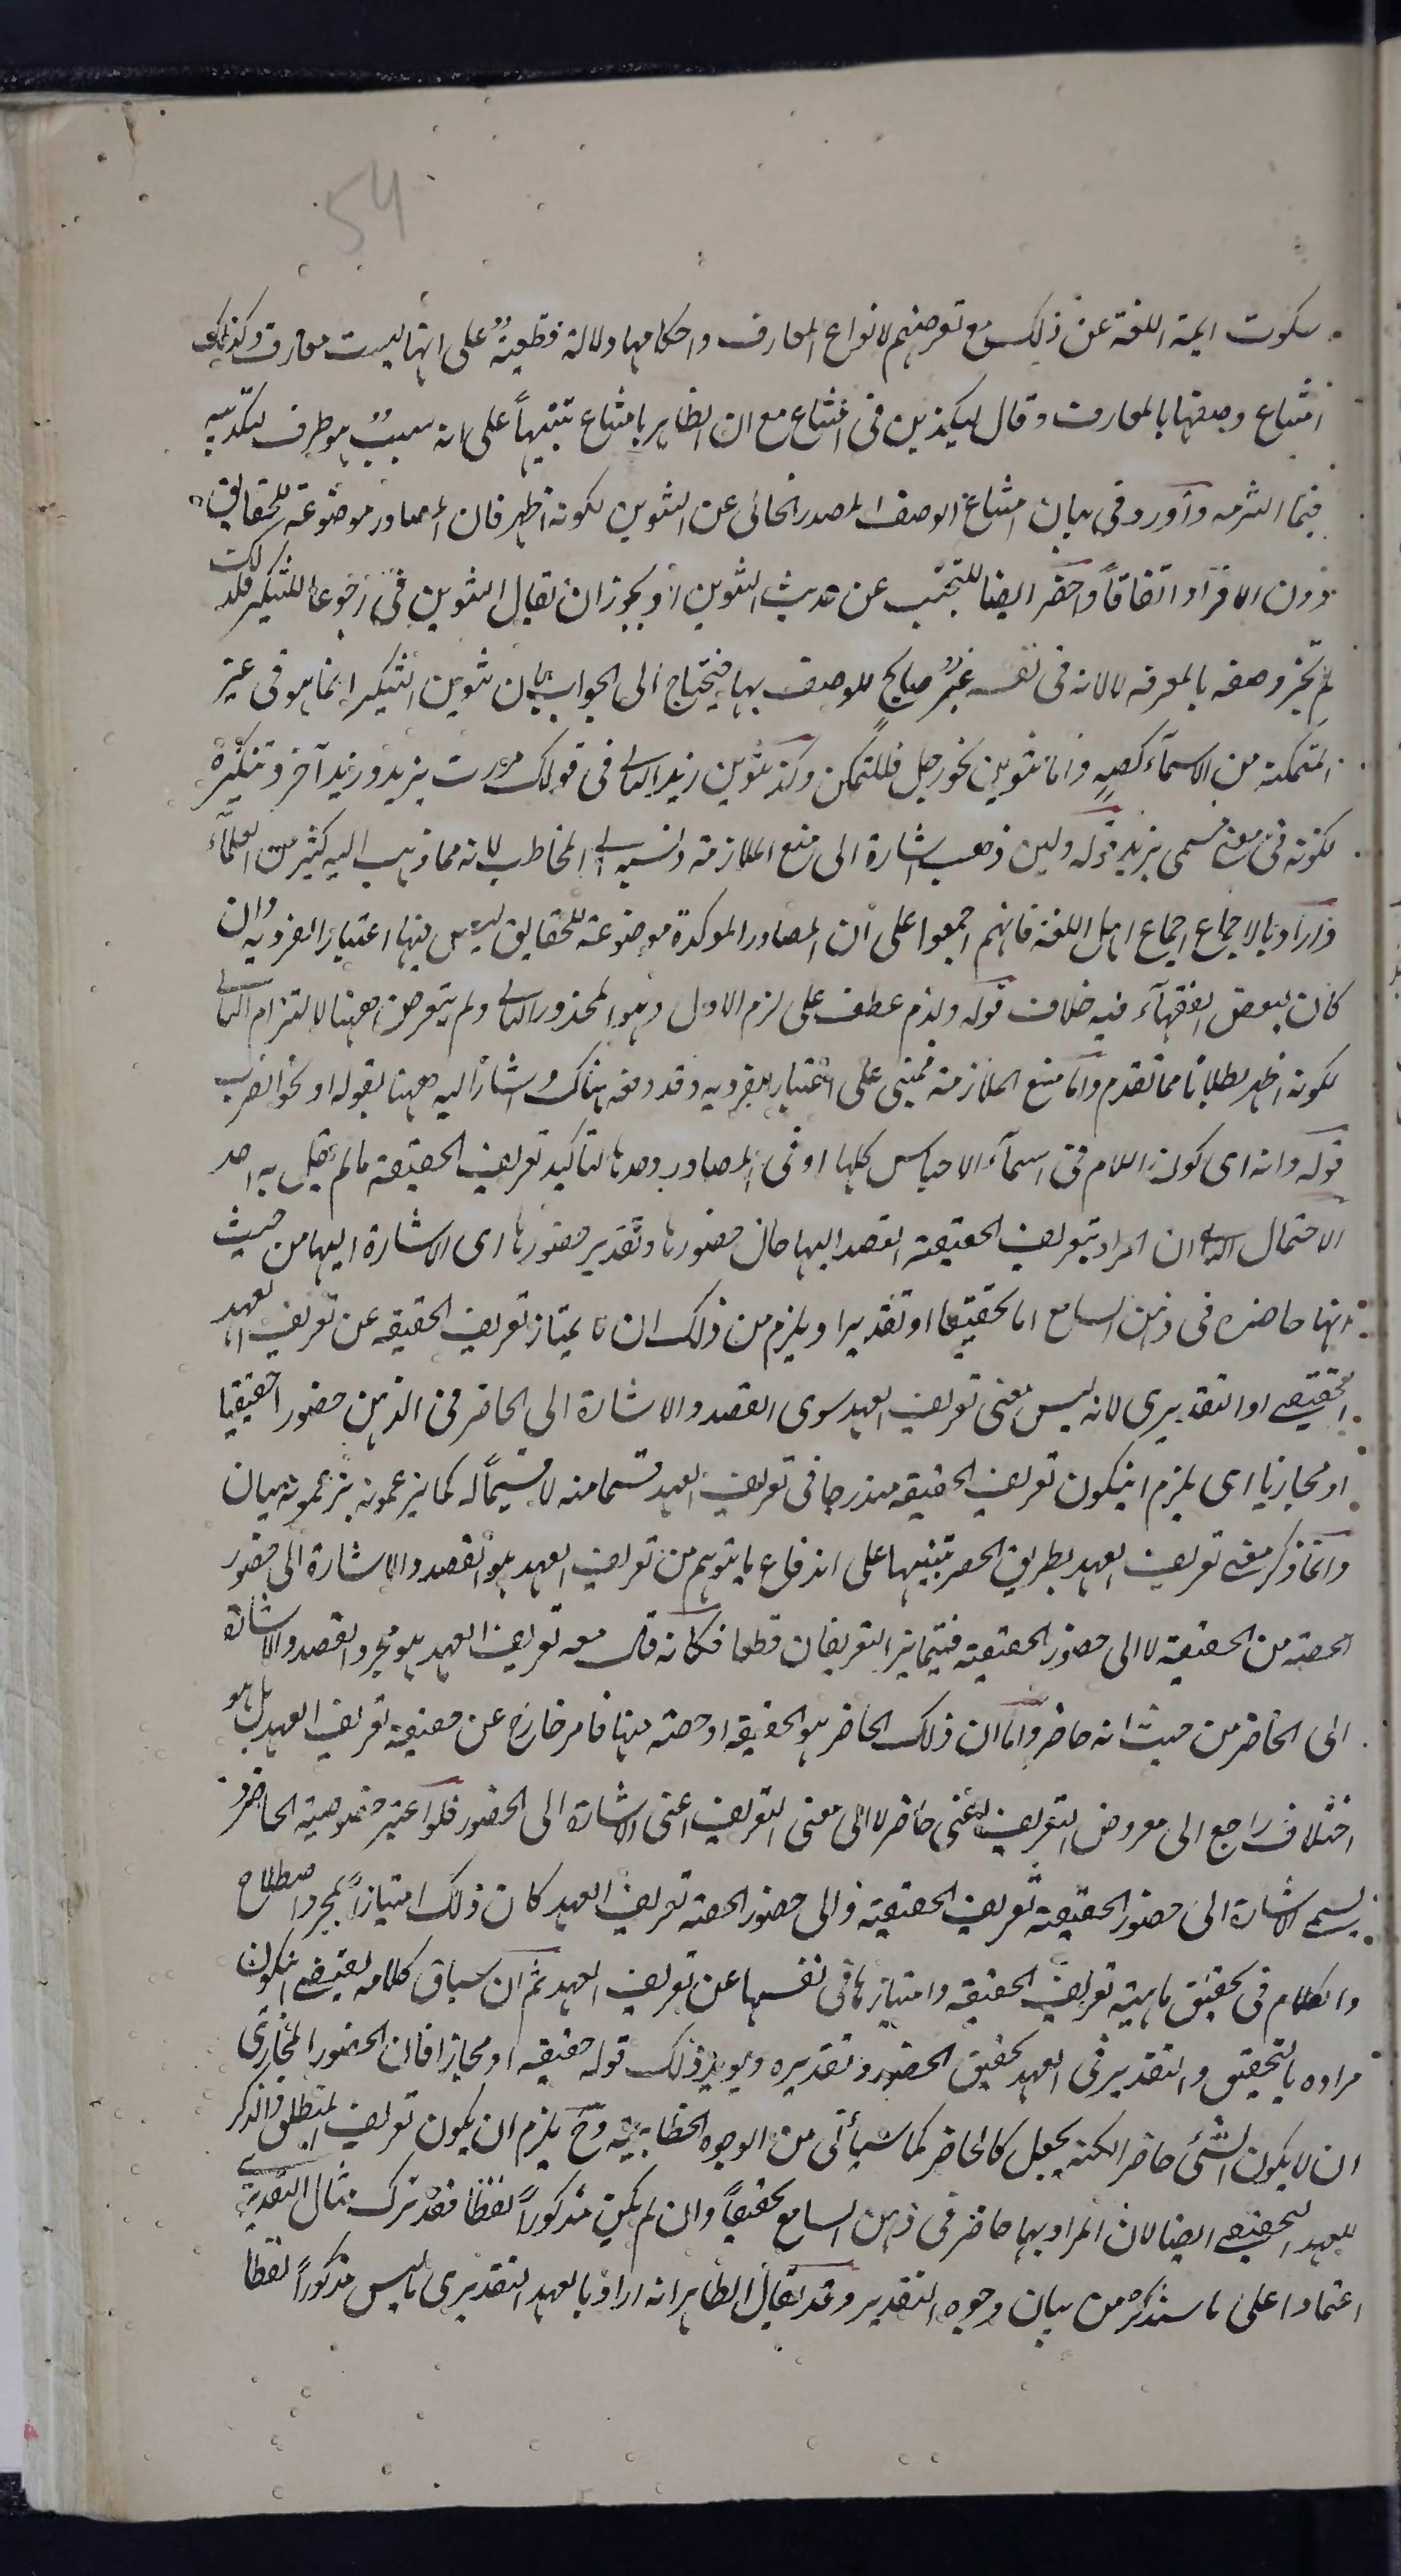 54
سكوت ايمة اللغة عن ذلك مع تعرضهم لانواع المعارف واحكامها دلالة قطعيةٌ على انها ليست معارف وكذلك
امتناع وصفها بالمعارف وقال ليكذبن فى امتناع مع ان الظاهر بامتناع تنبيهاً على انه سببٌ هو ظرف لتكذيبه
فيما التزمه وأورد فى بيان امتناع الوصف المصدر الخالى عن التنوين لكونه اظهر فان المصادر موضوعة للحقايق
دون الافراد اتفاقاً واحضر ايضا للتجنب عن حديث التنوين اذ يجوز ان يقال التنوين فى رجوعا للتنكير فلذلك
لم يجز وصفه بالمعرفة لا لانه فى نفسه غيرُ صالحٍ للوصف بها فيحتاج الى الجواب بان تنوين التنكير انما هو فى غير
المتمكنة من الاسمآء كصهٍ واما تنوين نحو رجل فللتمكن وكذا تنوين زيد الثانى فى قولك مررت بزيد وزيد آخر وتنكيره
لكونه فى معنى مسمى بزيد قوله ولين ذهب اشارة الى منع الملازمة ونسبه الى المخاطب لانه مما ذهب اليه كثير من العلمآء
واراد بالاجماع اجماع اهل اللغة فانهم اجمعوا على أن المصادر الموكدة موضوعة للحقايق ليس فيها اعتبار الفردية وان
كان لبعض الفقهآء فيه خلاف قوله ولزم عطف على لزم الاول وهو المحذور الثانى ولم يتعرض ههنا لالتزام الثانى
لكونه اظهر بطلانا مما تقدم واما منع الملازمة فمبنى على اعتبار الفردية وقد دفعه هناك واشار اليه ههنا بقوله او نحو الضرب
قوله وانه اى كون اللام فى اسمآء الاجناس كلها او فى المصادر وحدها لتأكيد تعريف الحقيقة مالم يقل به احد
الاحتمال الثانى ان المراد بتعريف الحقيقة القصد اليها حال حضورها وتقدير حضورها اى الاشارة اليها من حيث
انها حاضرة فى ذهن السامع اما تحقيقا او تقديرا ويلزم من ذلك ان لا يمتاز تعريف الحقيقة عن تعريف العهد اما
التحقيقى او التقديرى لانه ليس معنى تعريف العهد سوى القصد والاشارة الى الحاضر فى الذهن حضورا حقيقيا
او مجازيا اى يلزم ان يكون تعريف الحقيقة مندرجا فى تعريف العهد قسما منه لا قسيمآ له كما يزعمونه بيان
وانما ذكر معنى تعريف العهد بطريق الحصر تنبيها على اندفاع ما يتوهم من تعريف العهد هو القصد والاشارة الى حضور
الحصة من الحقيقة لا الى حضور الحقيقة فيتمايز التعريفان قطعا فكانه قال معنى تعريف العهد هو مجرد القصد والاشارة
الى الحاضر من حيث انه حاضر واما ان ذلك الحاضر هو الحقيقة او حصة منها فامر خارج عن حقيقة تعريف العهد بل هو
اختلاف راجع الى معروض التعريف اعنى حاضر لا الى معنى التعريف اعنى الاشارة الى الحضور فلو اعتبر خصوصية الحاضر و
يسمى الاشارة الى حضور الحقيقة تعريف الحقيقة والى حضور الحصة تعريف العهد كان ذلك امتيازاً بمجرد اصطلاح
والكلام فى تحقيق ماهية تعريف الحقيقة وامتيازها فى نفسها عن تعريف العهد ثم ان سياق كلامه يقتضى ان يكون
مراده بالتحقيق والتقدير فى العهد تحقيق الحضور وتقديره ويويد ذلك قوله حقيقة او مجازا فان الحضور المجازى
ان لا يكون الشئ حاضرا لكنه يجعل كالحاضر كما سيأتى من الوجوه الخطابية وح يلزم ان يكون تعريف المنطلق والذكر
للعهد التحقيقى ايضا لان المراد بها حاضر فى ذهن السامع تحقيقاً وان لم يكن مذكوراً لفظا فقد ترك مثال التقديرى
اعتمادا على ما سنذكره من بيان وجوه التقدير وقد يقال الظاهر انه اراد بالعهد التقديرى ما ليس مذكوراً لفظا